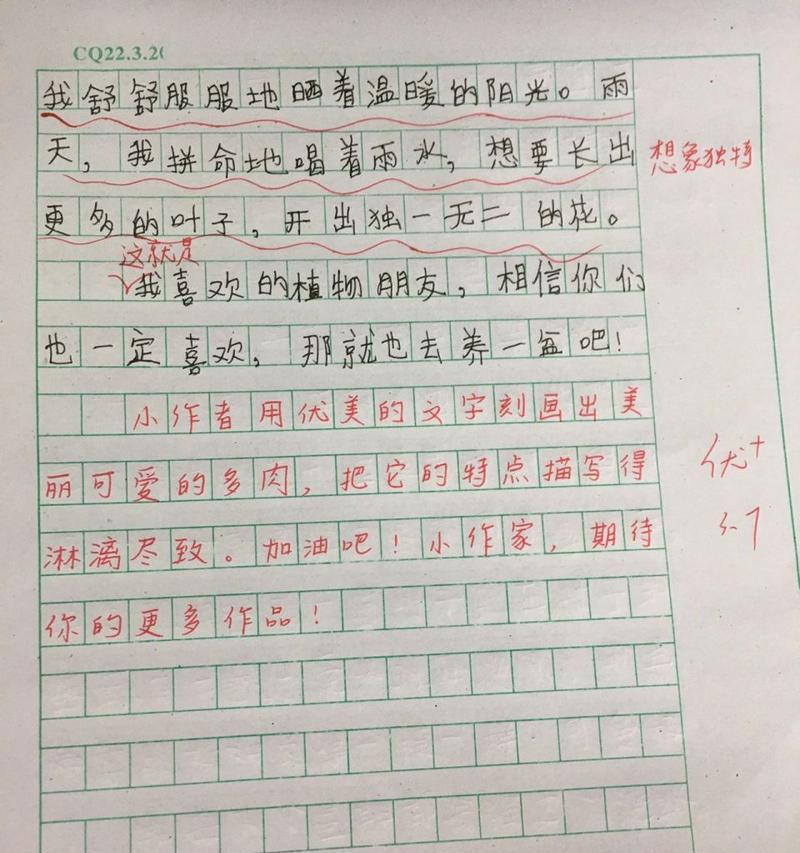 CQ22.3.2
我舒舒服服地晒着温暖的阳光。雨
天，我拼命地喝着雨水，想要长出
想象独特
更多的叶子，开出独一无二的花。
这就是
我喜欢的植物朋友，相信你们
也一定喜欢，那就也去养一盆吧！
小作者用优美的文字刻画出美
丽可爱的多肉，把它的特点描写得
优+
淋漓尽致。加油吧！小作家，期待
你的更多作品！